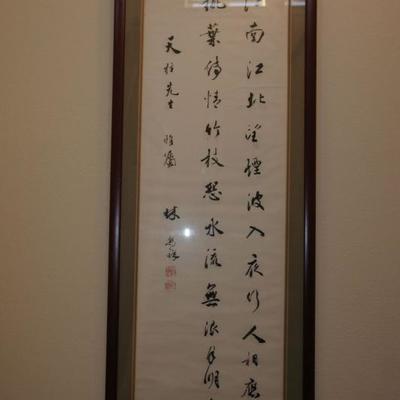 江南江北望煙波入夜行人相應
桃葉傳情竹枝怨水流無限月明
天柱先生 雅屬 林